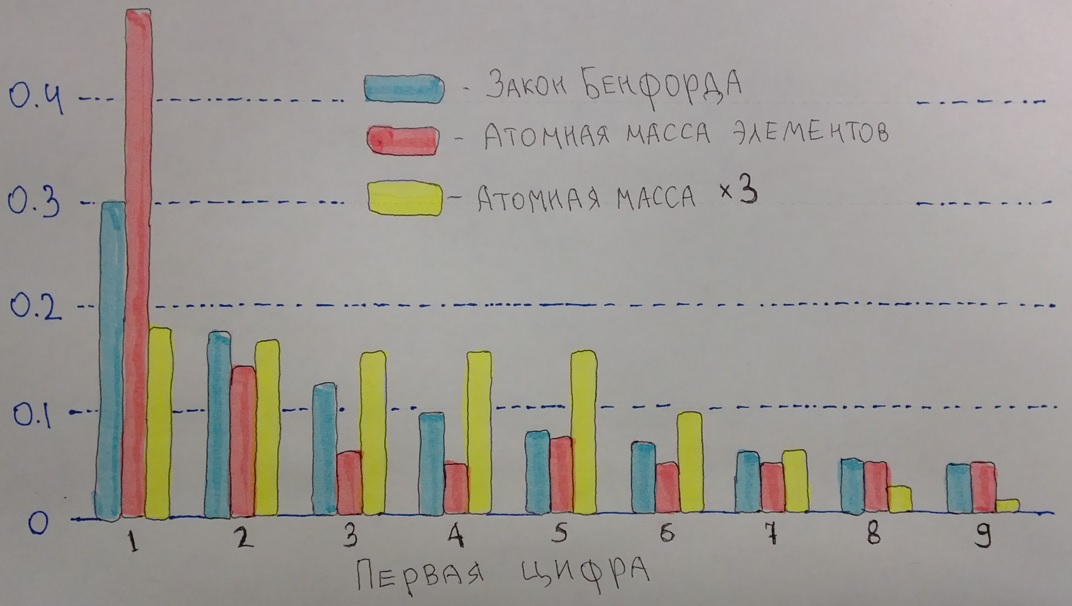 0.4
- Закон Бенфорда
- Атомная масса элементов
0.3
- Атомная масса ×3
0.2
0.1
0
1 2 3 4 5 6 7 8 9
Первая цифра